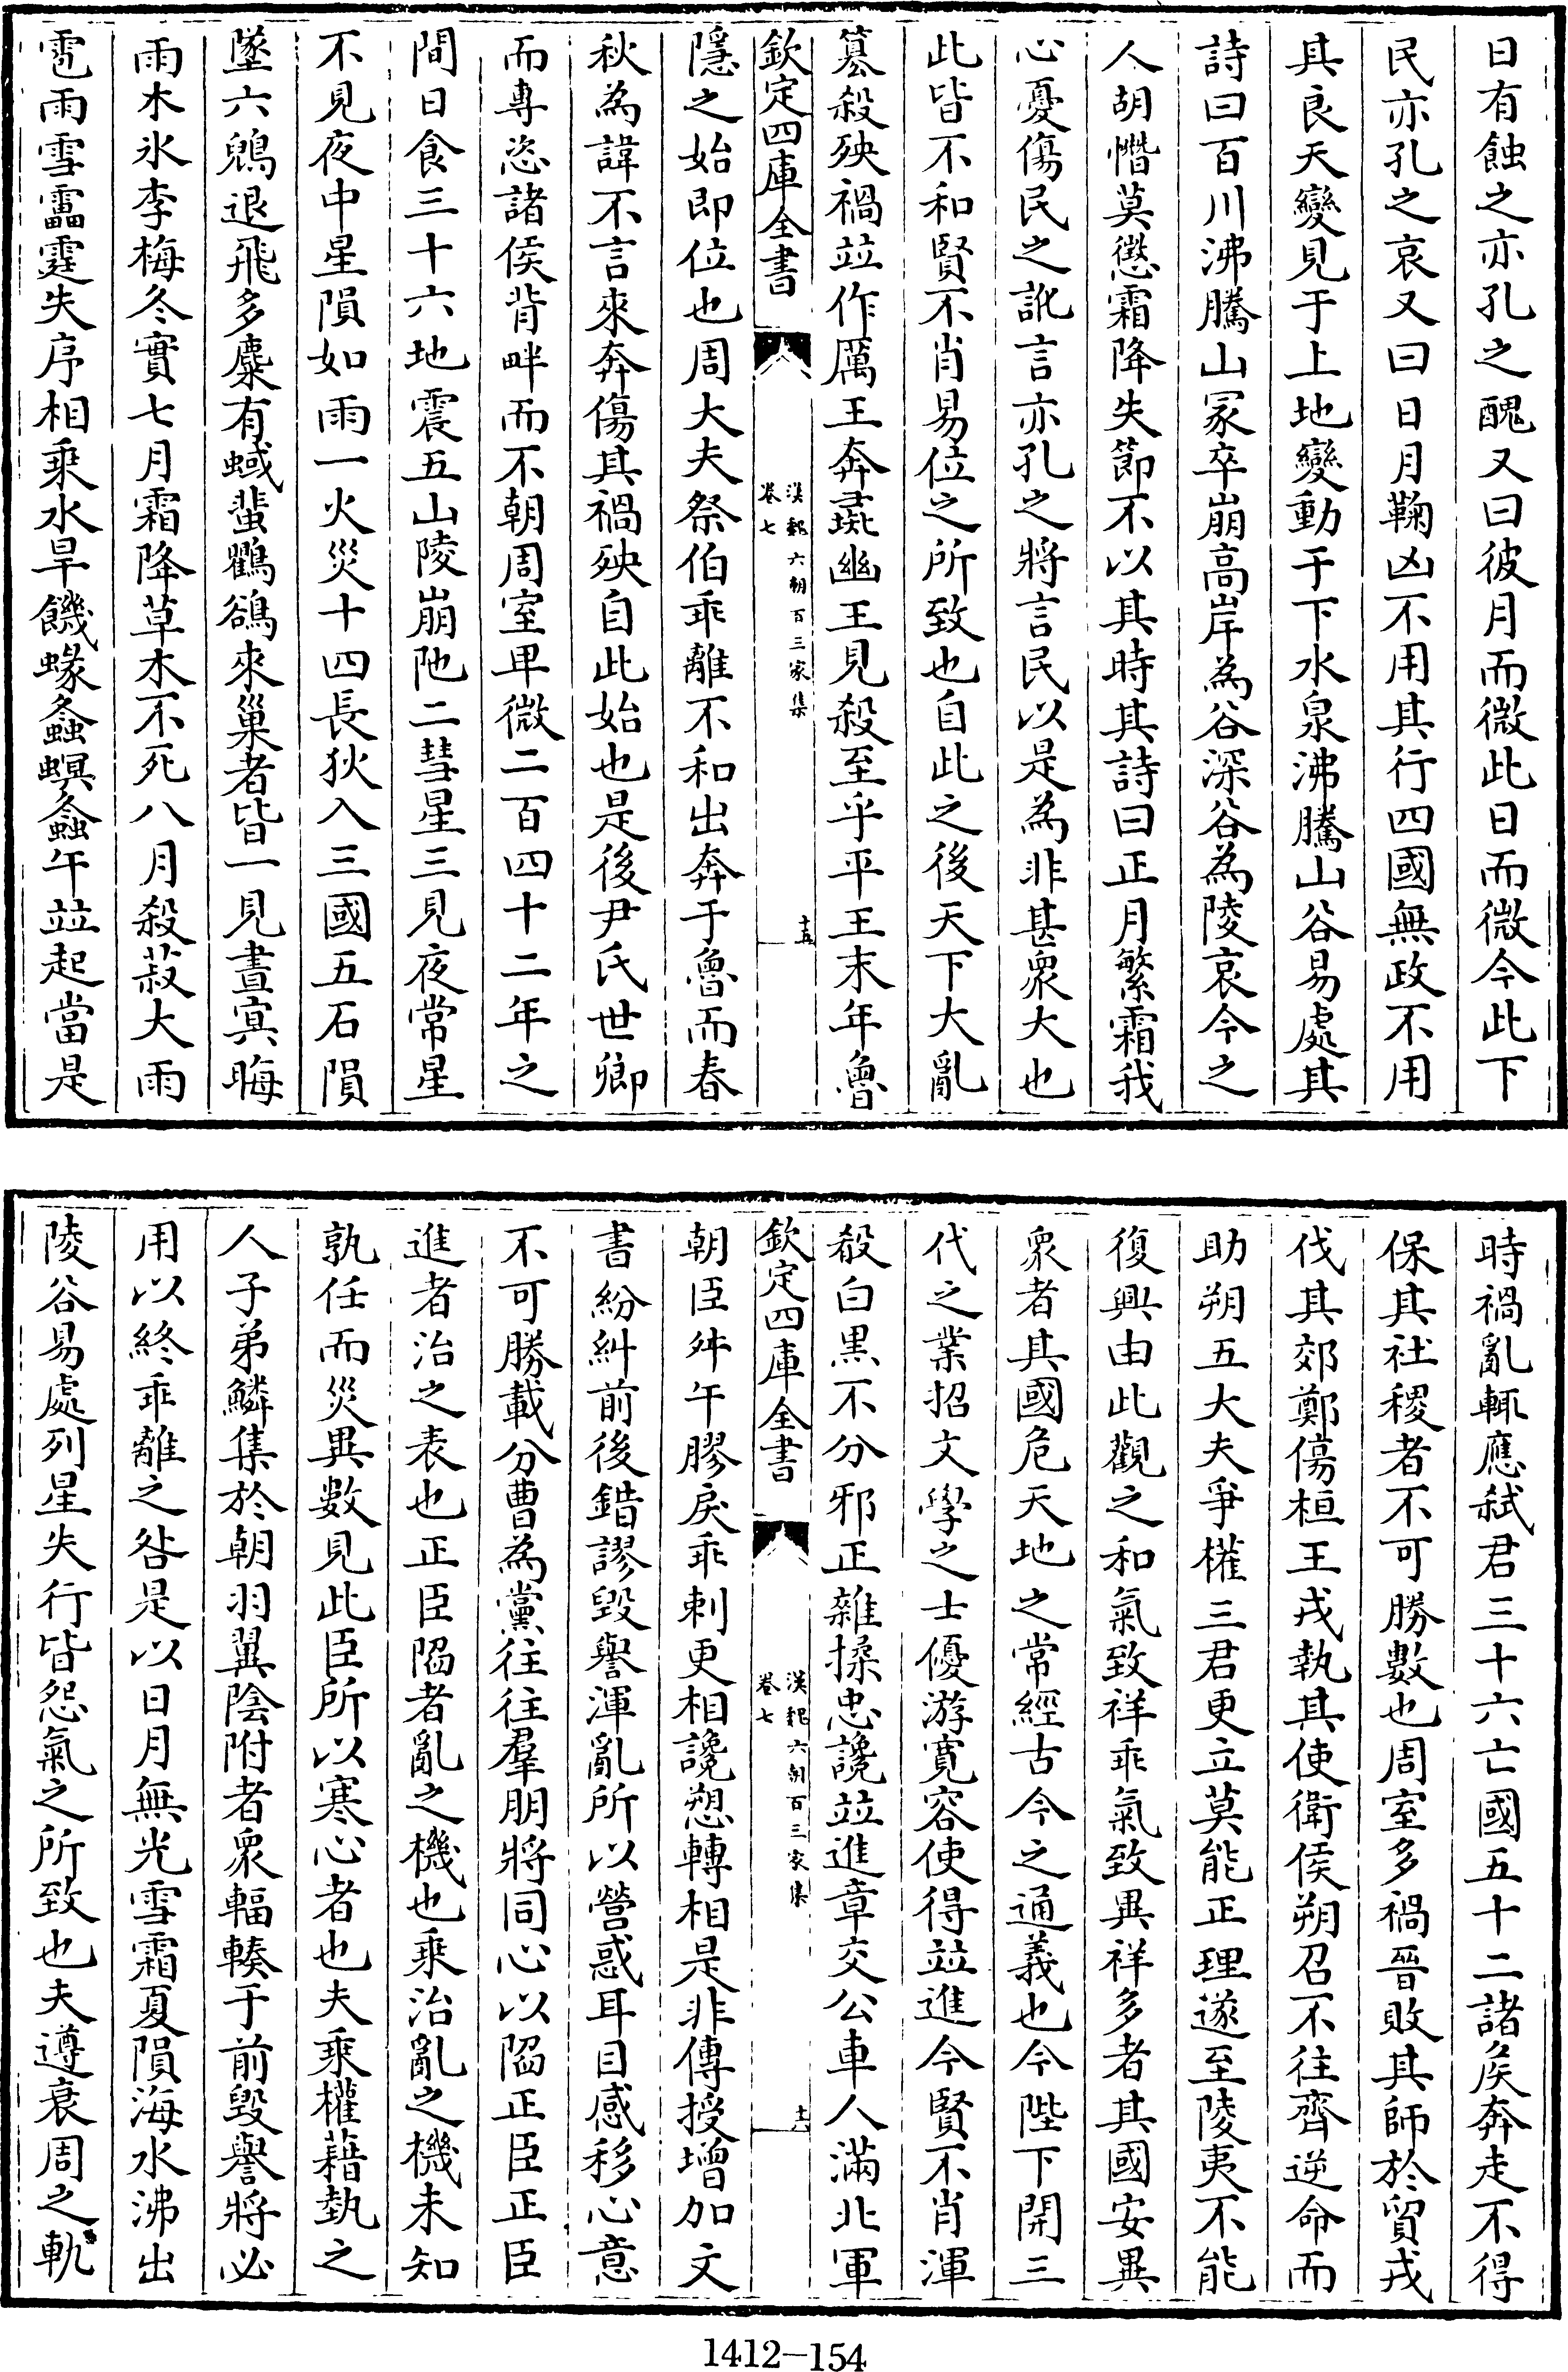 日有蝕之亦孔之醜又曰彼月而微此日而微今此下
民亦孔之哀又曰日月鞠凶不用其行四國無政不用
其良天變見于上地變動于下水泉沸騰山谷易處其
詩曰百川沸騰山冡卒崩高岸為谷深谷為陵哀今之
人胡憯莫懲霜降失節不以其時其詩曰正月繁霜我
心憂傷民之訛言亦孔之將言民以是為非甚衆大也
此皆不和賢不肖易位之所致也自此之後天下大亂
簒殺殃禍竝作厲王奔彘幽王見殺至乎平王末年魯
欽定四庫全書
漢魏六朝百三家集
卷七
十五
隱之始即位也周大夫祭伯乖離不和出奔于魯而春
秋為諱不言來奔傷其禍殃自此始也是後尹氏世卿
而專恣諸侯背畔而不朝周室卑微二百四十二年之
間日食三十六地震五山陵崩阤二彗星三見夜常星
不見夜中星隕如雨一火災十四長狄入三國五石隕
墜六鶂退飛多麋有蜮蜚鸜鵒來巢者皆一見晝冥晦
雨木氷李梅冬實七月霜降草木不死八月殺菽大雨
雹雨雪靁霆失序相乘水旱饑蝝螽螟螽午竝起當是
時禍亂輒應弒君三十六亡國五十二諸侯奔走不得
保其社稷者不可勝數也周室多禍晉敗其師於貿戎
伐其郊鄭傷桓王戎執其使衛侯朔召不往齊逆命而
助朔五大夫爭權三君更立莫能正理遂至陵夷不能
復興由此觀之和氣致祥乖氣致異祥多者其國安異
衆者其國危天地之常經古今之通義也今陛下開三
代之業招文學之士優游寛容使得竝進今賢不肖渾
殽白黒不分邪正雜揉忠讒竝進章交公車人滿北軍
欽定四庫全書
漢魏六朝百三家集
卷七
十六
朝臣舛午膠戾乖剌更相讒愬轉相是非傳授增加文
書紛糾前後錯謬毀譽渾亂所以營惑耳目感移心意
不可勝載分曹為黨往往羣朋將同心以陷正臣正臣
進者治之表也正臣陷者亂之機也乘治亂之機未知
孰任而災異數見此臣所以寒心者也夫乘權藉埶之
人子弟鱗集於朝羽翼陰附者衆輻輳于前毀譽將必
用以終乖離之咎是以日月無光雪霜夏隕海水沸出
陵谷易處列星失行皆怨氣之所致也夫遵衰周之軌
1412—154